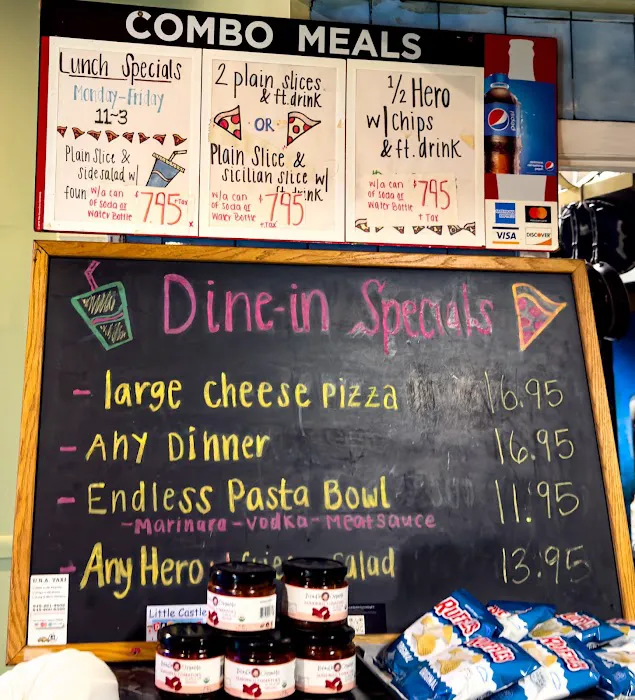 COMBO MEALS
Lunch Specials
Monday-Friday
11-3
Plain Slice &
side salad w/
foun
w/a can
of soda or
water Bottle
$7.95 +Tax
2 plain slices
& ft.drink
OR
Plain Slice &
sicilian slice w/
ft.drink
w/a can
of soda or
water Bottle
$7.95
+Tax
1/2 Hero
w/chips
& ft.drink
w/a can
of soda or
water Bottle
$7.95
+ Tax
pepsi
VISA
DISCOVER
Dine-in Specials
- large cheese pizza 16.95
- Any Dinner 16.95
- Endless Pasta Bowl 11.95
-Marinara -Vodka- Meatsauce
- Any Hero salad 13.95
Little Castle
Ruffles
Ruffles
Ruffles